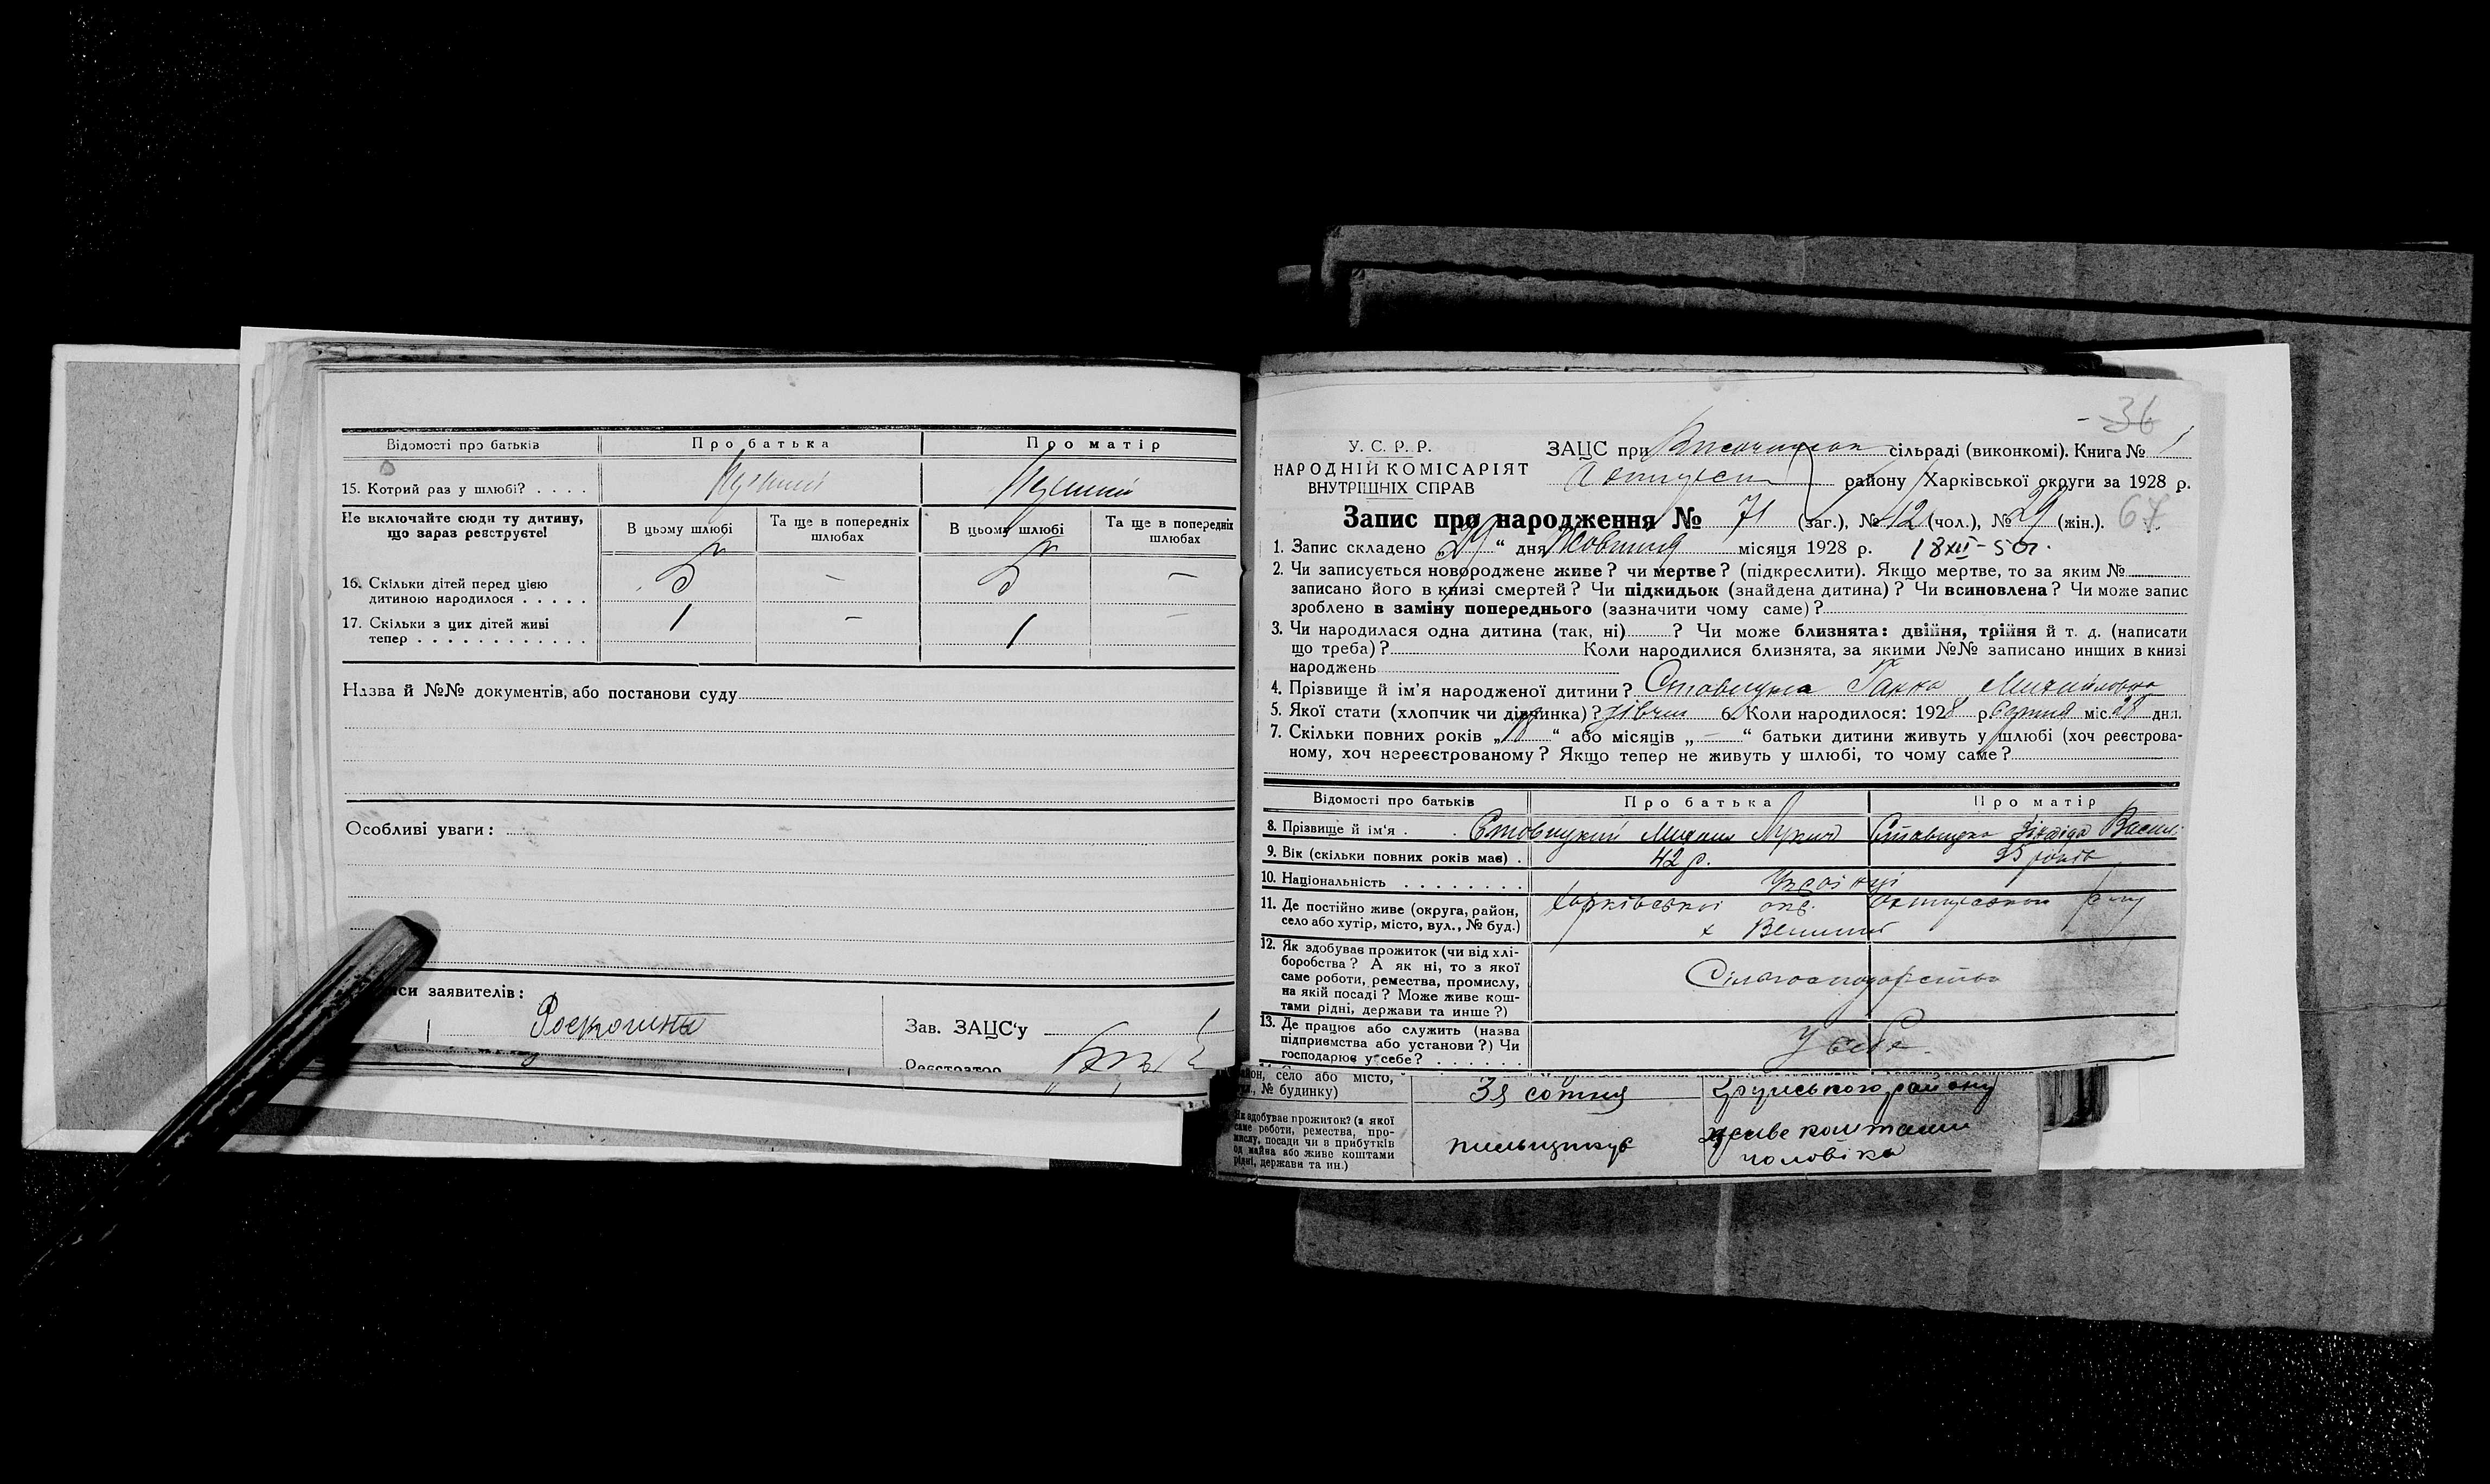 Відомості про батьків Про батька Про матір
15. Котрий раз у шлюбі? . . . .
Не включайте сюди ту дитину, що зараз реєструєте! В цьому шлюбі Та ще в попередніх шлюбах В цьому шлюбі Та ще в попередніх шлюбах
16. Скільки дітей перед цією
дитиною народилося . . . . . 5 – 5 –
17. Скільки з цих дітей живі
тепер . . . . . . . . . . . . 1 – 1 –
Назва й №№ документів, або постанови суду
Особливі уваги:
заявителів:
1
Зав. ЗАЦС'у
Реєстратор
36
У. С. Р. Р.
НАРОДНІЙ КОМІСАРІЯТ
ВНУТРІШНІХ СПРАВ
ЗАЦС при сільраді (виконкомі). Книга № 1
району Харківської округи за 1928 р.
Запис про народження № 71 (заг.), № 42 (чол.), № 29 (жін.). 67
1. Запис складено 29 “ дня Жовтня місяця 1928 р. 18 XII - 50г.
2. Чи записується новороджене живе? чи мертве? (підкреслити). Якщо мертве, то за яким №
записано його в книзі смертей? Чи підкидьок (знайдена дитина)? Чи всиновлена? Чи може запис
зроблено в заміну попереднього (зазначити чому саме)?
3. Чи народилася одна дитина (так, ні) ? Чи може близнята: двійня, трійня й т. д. (написати
що треба)? Коли народилися близнята, за якими №№ записано инших в книзі
народжень
4. Прізвище й ім'я народженої дитини? Ставицка Ганна Михайловна
5. Якої стати (хлопчик чи дівчинка)? дівчин 6. Коли народилося: 1928 р. Серпня міс. 28 дня.
7. Скільки повних років „ “ або місяців „ – “ батьки дитини живуть у шлюбі (хоч реєстрова-
ному, хоч нереєстрованому? Якщо тепер не живуть у шлюбі, то чому саме?
Відомості про батьків Про батька Про матір
8. Прізвище й ім'я . . Ставицкий Михаил Ставицка Васил.
9. Вік (скільки повних років має) . 42 р. років
10. Національність . . . . . . . . Українці
11. Де постійно живе (округа, район,
село або хутір, місто, вул., № буд.) Харківської окр.
12. Як здобуває прожиток (чи від хлі-
боробства? А як ні, то з якої
саме роботи, ремества, промислу,
на якій посаді? Може живе кош-
тами рідні, держави та инше?) Сільгосподарство
13. Де працює або служить (назва
підприємства або установи?) Чи
господарює у себе? . . . . . . У себе.
район, село або місто,
№ будинку) 3я сотня району
Як здобуває прожиток? (з якої
саме роботи, ремества, про-
мислу, посади чи з прибутків
од майна або живе коштами
рідні, держави та ин.) живе коштами
чоловіка